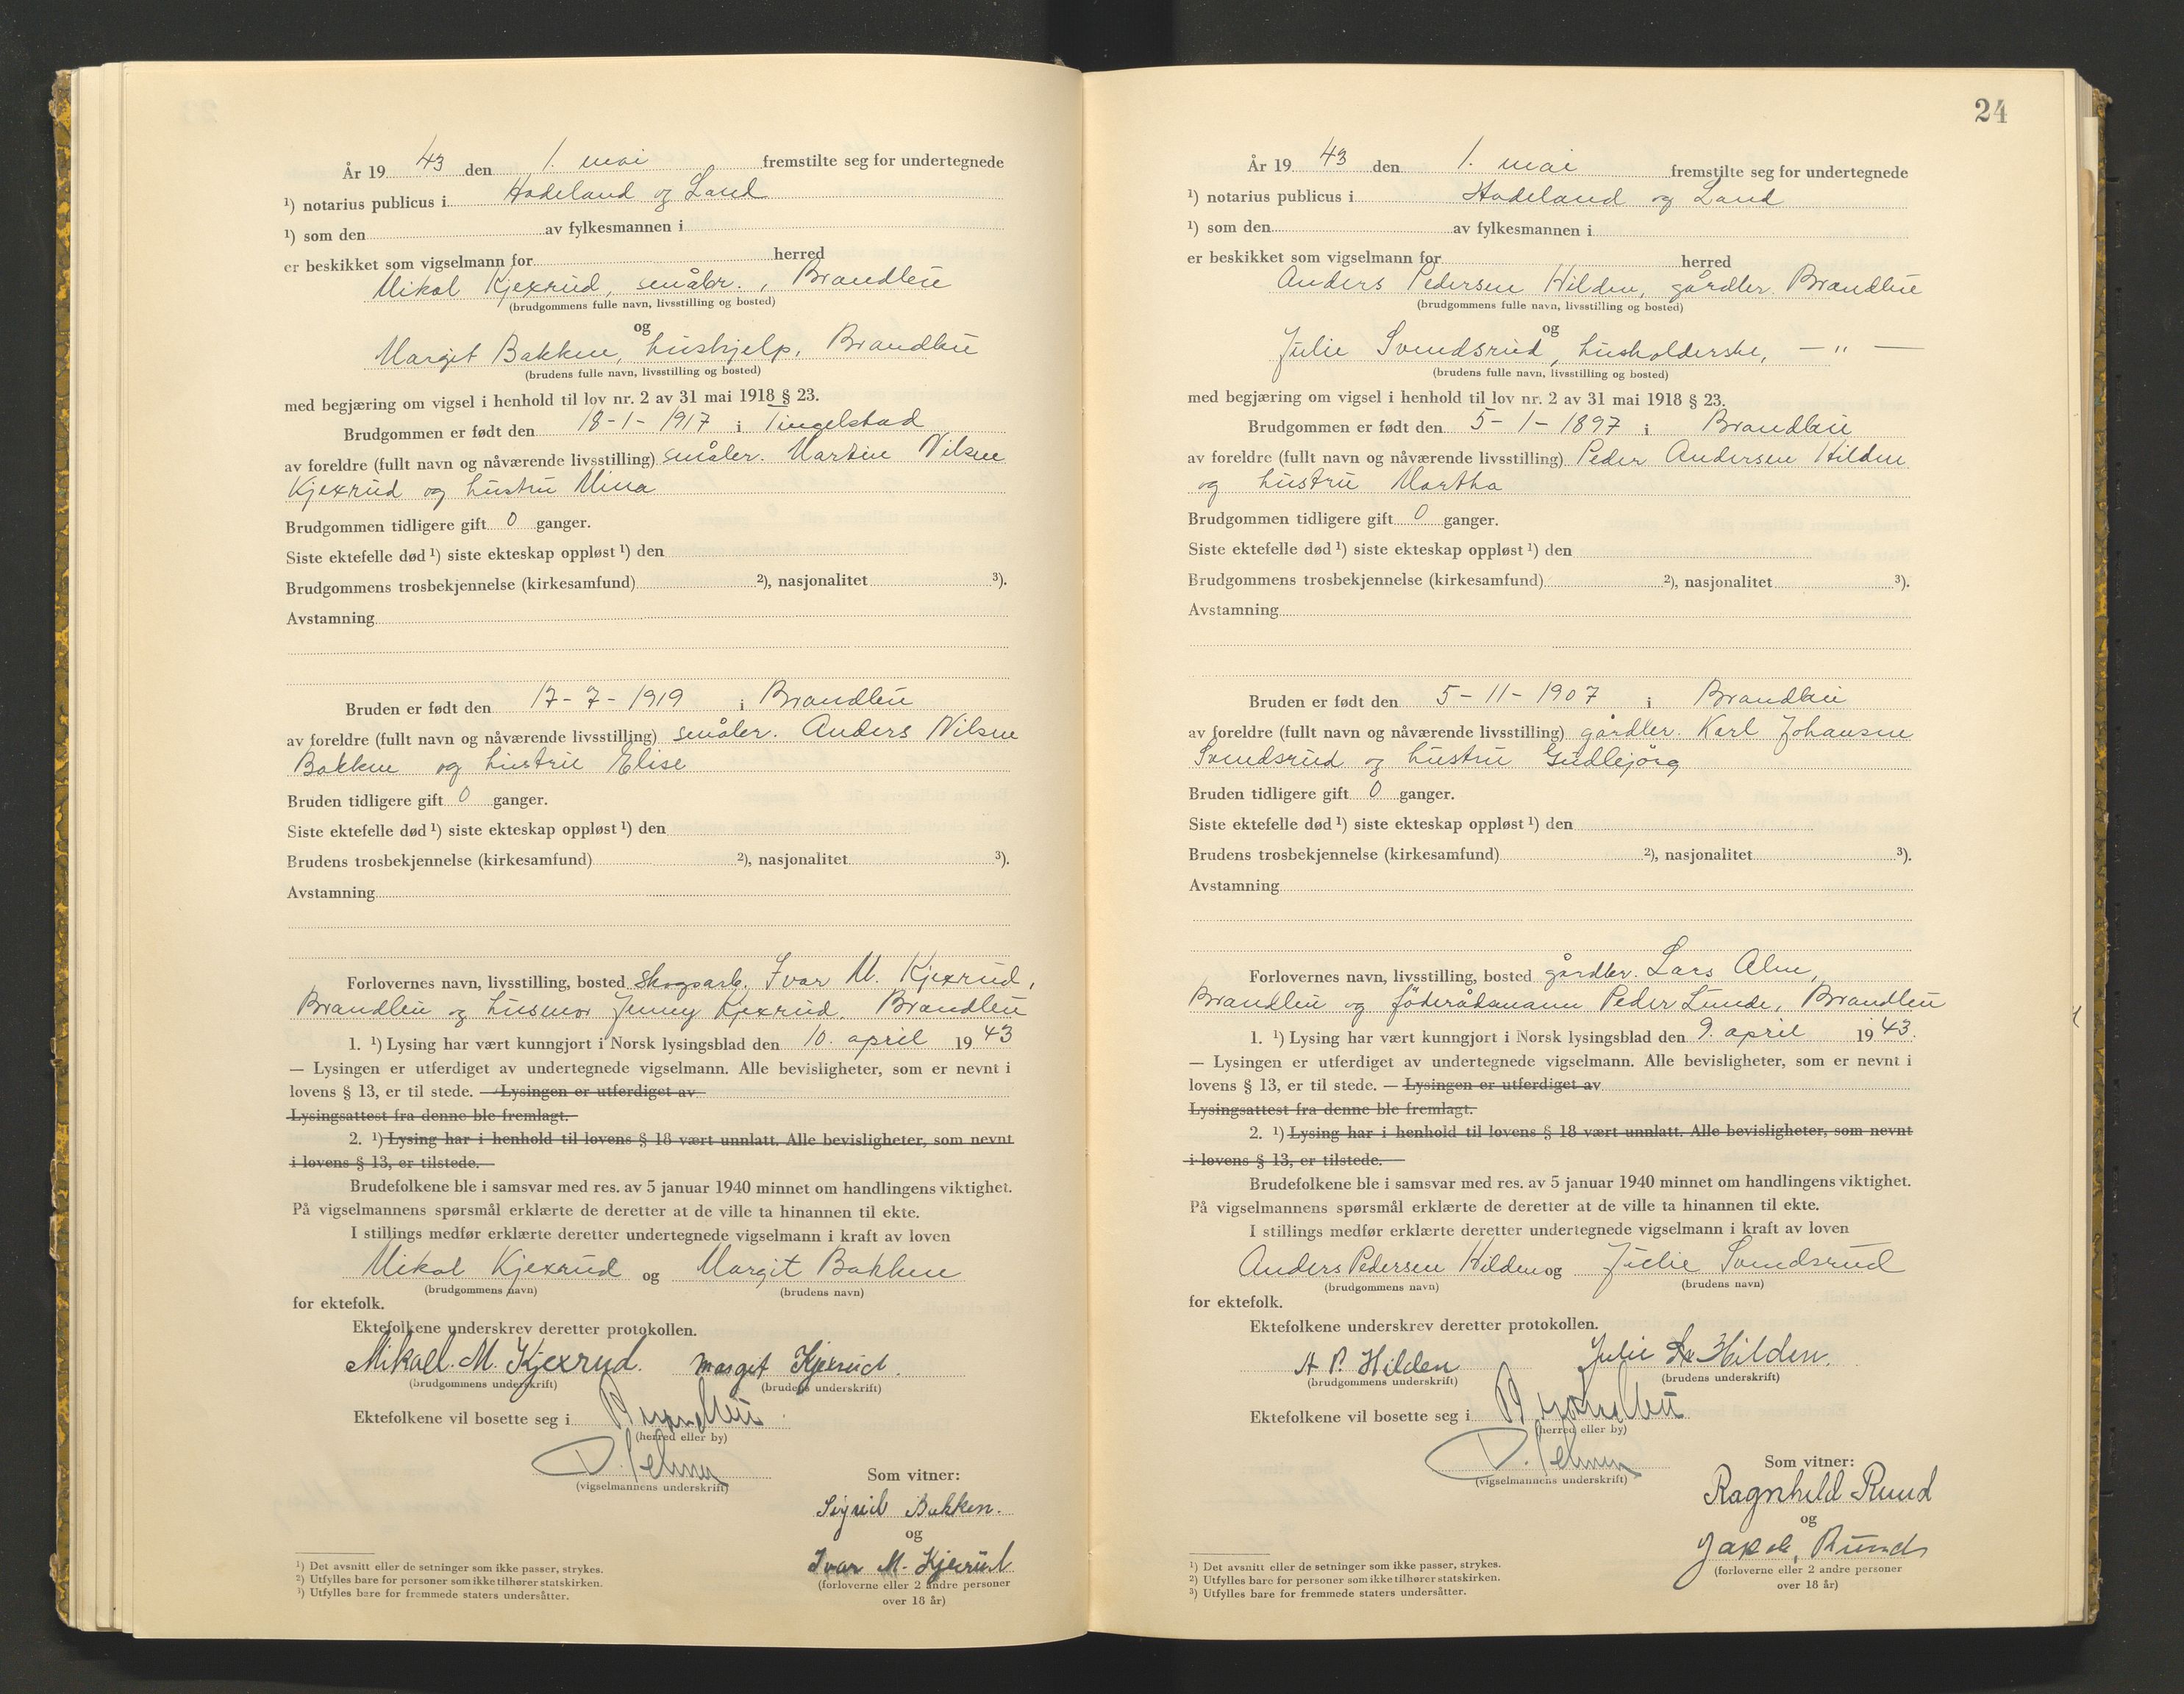 År 19 43 den 1. mai fremstilte seg for undertegnede
¹) notarius publicus i Hadeland og Land
¹) som den av fylkesmannen i
er beskikket som vigselmann for herred
Mikal Kjexrud, småbr., Brandbu
(brudgommens fulle navn, livsstilling og bosted)
og
Margit Bakken, hushjelp, Brandbu
(brudens fulle navn, livsstilling og bosted)
med begjæring om vigsel i henhold til lov nr. 2 av 31 mai 1918 § 23.
Brudgommen er født den 18-1-1917 i Tingelstad
av foreldre (fullt navn og nåværende livsstilling) småbr. Martin Nilsen
Kjexrud og hustru Mina
Brudgommen tidligere gift 0 ganger.
Siste ektefelle død ¹) siste ekteskap oppløst ¹) den
Brudgommens trosbekjennelse (kirkesamfund) ²), nasjonalitet ³).
Avstamning
Bruden er født den 17-7-1919 i Brandbu
av foreldre (fullt navn og nåværende livsstilling) småbr. Anders Nilsen
Bakken og hustru Elise
Bruden tidligere gift 0 ganger.
Siste ektefelle død ¹) siste ekteskap oppløst ¹) den
Brudens trosbekjennelse (kirkesamfund) ²), nasjonalitet ³).
Avstamning
Forlovernes navn, livsstilling, bosted skogsarb. Ivar M. Kjexrud,
Brandbu og husmor Jenny Kjexrud, Brandbu
1. ¹) Lysing har vært kunngjort i Norsk lysingsblad den 10. april 19 43
— Lysingen er utferdiget av undertegnede vigselmann. Alle bevisligheter, som er nevnt i
lovens § 13, er til stede. — Lysingen er utferdiget av
Lysingsattest fra denne ble fremlagt.
2. ¹) Lysing har i henhold til lovens § 18 vært unnlatt. Alle bevisligheter, som nevnt
i lovens § 13, er tilstede.
Brudefolkene ble i samsvar med res. av 5 januar 1940 minnet om handlingens viktighet.
På vigselmannens spørsmål erklærte de deretter at de ville ta hinannen til ekte.
I stillings medfør erklærte deretter undertegnede vigselmann i kraft av loven
Mikal Kjexrud og Margit Bakken
(brudgommens navn) (brudens navn)
for ektefolk.
Ektefolkene underskrev deretter protokollen.
Mikael. M. Kjexrud. Margit Kjexrud.
(brudgommens underskrift) (brudens underskrift)
Ektefolkene vil bosette seg i Brandbu
(herred eller by)
(vigselmannens underskrift)
Som vitner:
Sigrid Bakken.
og
Ivar M. Kjexrud
(forloverne eller 2 andre personer
over 18 år)
¹) Det avsnitt eller de setninger som ikke passer, strykes.
²) Utfylles bare for personer som ikke tilhører statskirken.
³) Utfylles bare for fremmede staters undersåtter.
24
År 19 43 den 1. mai fremstilte seg for undertegnede
¹) notarius publicus i Hadeland og Land
¹) som den av fylkesmannen i
er beskikket som vigselmann for herred
Anders Pedersen Hilden, gårdbr. Brandbu
(brudgommens fulle navn, livsstilling og bosted)
og
Julie Svendsrud, husholderske, — " —
(brudens fulle navn, livsstilling og bosted)
med begjæring om vigsel i henhold til lov nr. 2 av 31 mai 1918 § 23.
Brudgommen er født den 5-1-1897 i Brandbu
av foreldre (fullt navn og nåværende livsstilling) Peder Andersen Hilden
og hustru Martha
Brudgommen tidligere gift 0 ganger.
Siste ektefelle død ¹) siste ekteskap oppløst ¹) den
Brudgommens trosbekjennelse (kirkesamfund) ²), nasjonalitet ³).
Avstamning
Bruden er født den 5-11-1907 i Brandbu
av foreldre (fullt navn og nåværende livsstilling) gårdbr. Karl Johansen
Svendsrud og hustru Gudbjørg
Bruden tidligere gift 0 ganger.
Siste ektefelle død ¹) siste ekteskap oppløst ¹) den
Brudens trosbekjennelse (kirkesamfund) ²), nasjonalitet ³).
Avstamning
Forlovernes navn, livsstilling, bosted gårdbr. Lars Alm,
Brandbu og föderådsmann Peder Lunde, Brandbu
1. ¹) Lysing har vært kunngjort i Norsk lysingsblad den 9. april 19 43.
— Lysingen er utferdiget av undertegnede vigselmann. Alle bevisligheter, som er nevnt i
lovens § 13, er til stede. — Lysingen er utferdiget av
Lysingsattest fra denne ble fremlagt.
2. ¹) Lysing har i henhold til lovens § 18 vært unnlatt. Alle bevisligheter, som nevnt
i lovens § 13, er tilstede.
Brudefolkene ble i samsvar med res. av 5 januar 1940 minnet om handlingens viktighet.
På vigselmannens spørsmål erklærte de deretter at de ville ta hinannen til ekte.
I stillings medfør erklærte deretter undertegnede vigselmann i kraft av loven
Anders Pedersen Hilden og Julie Svendsrud
(brudgommens navn) (brudens navn)
for ektefolk.
Ektefolkene underskrev deretter protokollen.
A P. Hilden Julie Hilden.
(brudgommens underskrift) (brudens underskrift)
Ektefolkene vil bosette seg i Brandbu
(herred eller by)
(vigselmannens underskrift)
Som vitner:
Ragnhild Ruud
og
Jakob Ruud
(forloverne eller 2 andre personer
over 18 år)
¹) Det avsnitt eller de setninger som ikke passer, strykes.
²) Utfylles bare for personer som ikke tilhører statskirken.
³) Utfylles bare for fremmede staters undersåtter.